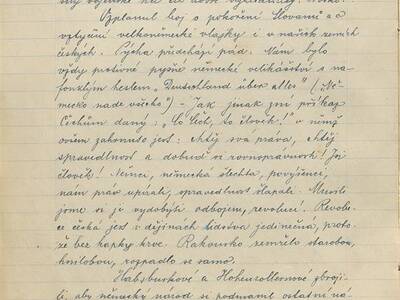 Vzplanul boj s pokoření Slovanů a o
vztyčení velkoněmecké vlajky i v našich zemích
českých. Pýcha předchází pád. Nám bylo
vždy protivné pyšné německé velikášství s na-
fouklým heslem „Deutschland über alles" („Ně-
mecko nade všecko") - Jak jinak zní příkaz
Čechům daný: „Co Čech, to člověk!" v němž
ovšem zahrnuto jest: chtěj svá práva, chtěj
spravedlnost a dobuď si rovnoprávnost! Jsi
člověk! Němci, německá šlechta, povýšenci,
nám práv upírali, spravedlnost šlapali. Musili
jsme si je vydobýti odbojem, revolucí. Revolu-
ce česká jest v dějinách lidstva jedinečná, proto-
že bez kapky krve. Rakousko zemřelo starobou,
hnilobou, rozpadlo se samo.
Habsburkové a Hohenzollernové zbroji-
li, aby německý národ si podmanil ostatní ná-